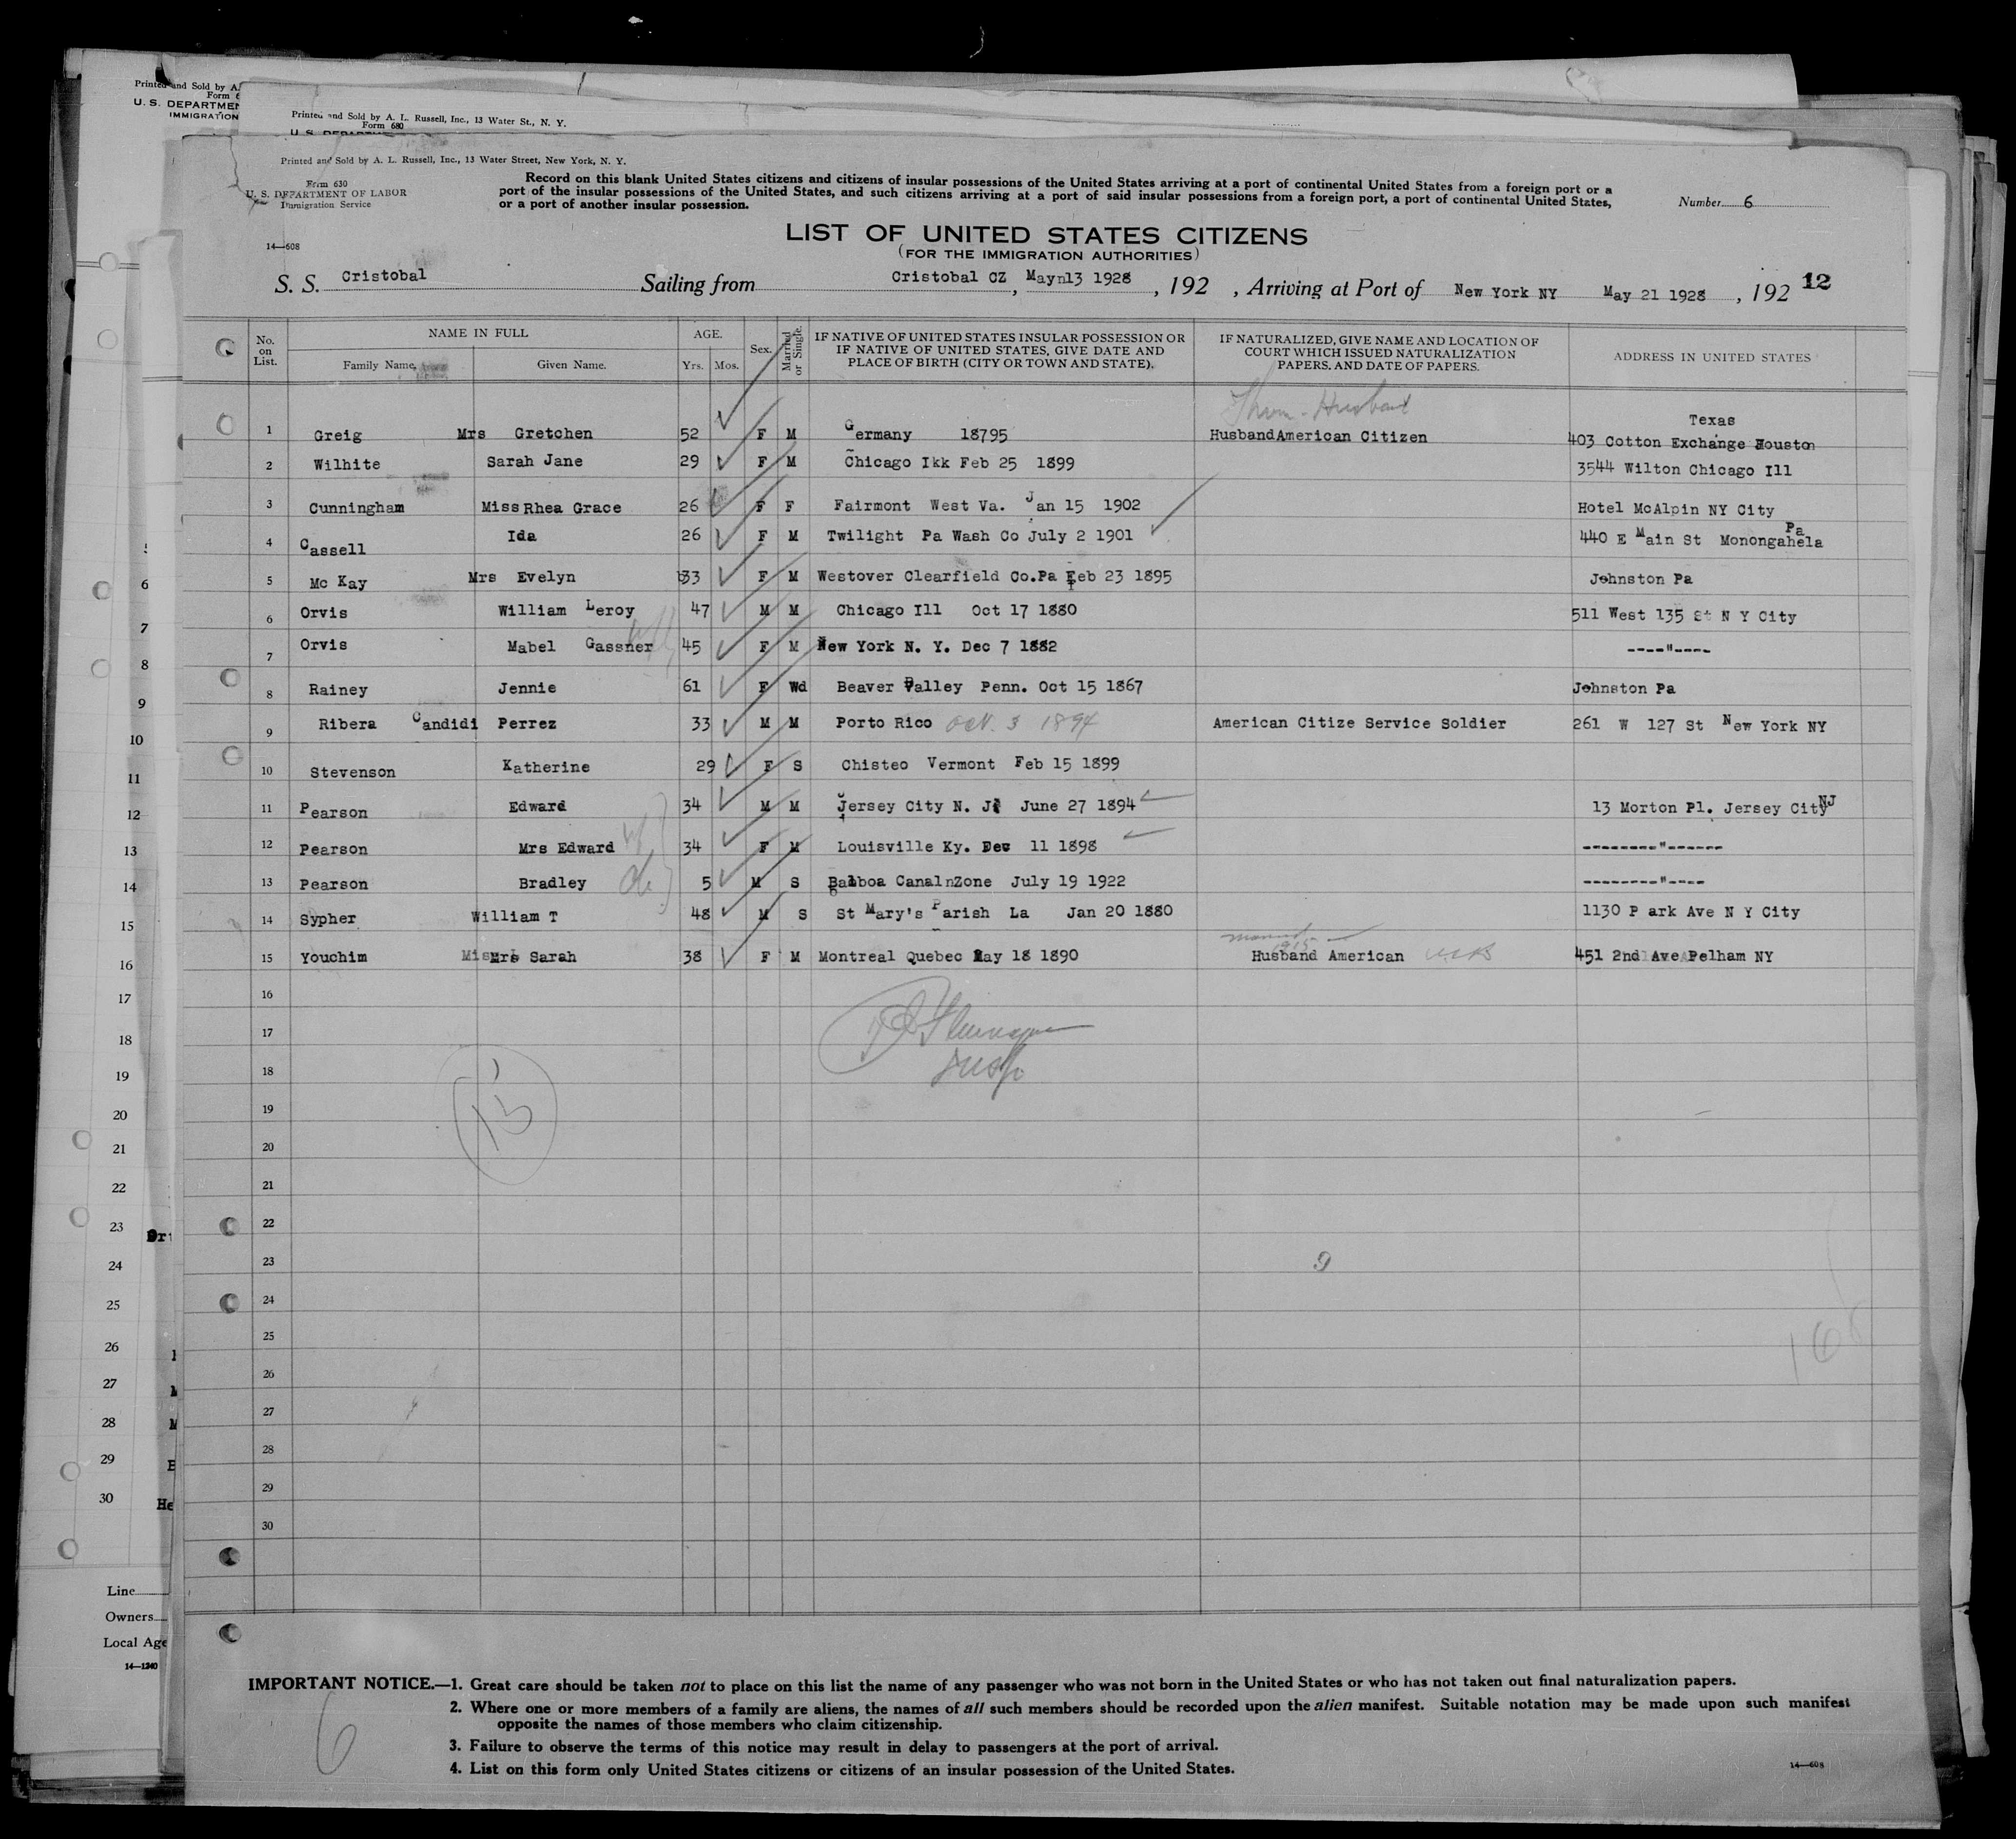 Printed and Sold by A.
Form 6
U. S. DEPARTMEN
IMMIGRATION
Printed and Sold by A. L. Russell, Inc., 13 Water St., N. Y.
Form 680
Printed and Sold by A. L. Russell, Inc., 13 Water Street, New York, N. Y.
Form 630
U. S. DEPARTMENT OF LABOR
Immigration Service
14—608
Record on this blank United States citizens and citizens of insular possessions of the United States arriving at a port of continental United States from a foreign port or a
port of the insular possessions of the United States, and such citizens arriving at a port of said insular possessions from a foreign port, a port of continental United States,
or a port of another insular possession.
Number 6
LIST OF UNITED STATES CITIZENS
(FOR THE IMMIGRATION AUTHORITIES)
S. S. Cristobal Sailing from Cristobal CZ, Mayn13 1928, 192 , Arriving at Port of New York NY May 21 1928, 192 12
No. on List. NAME IN FULL AGE. Sex. Married or Single. IF NATIVE OF UNITED STATES INSULAR POSSESSION OR IF NATIVE OF UNITED STATES, GIVE DATE AND PLACE OF BIRTH (CITY OR TOWN AND STATE). IF NATURALIZED, GIVE NAME AND LOCATION OF COURT WHICH ISSUED NATURALIZATION PAPERS, AND DATE OF PAPERS. ADDRESS IN UNITED STATES
Family Name. Given Name. Yrs. Mos.
Husband
Texas
1 Greig Mrs Gretchen 52 F M Germany 18795 HusbandAmerican Citizen 403 Cotton Exchange Houston
2 Wilhite Sarah Jane 29 F M Chicago Ikk Feb 25 1899 3544 Wilton Chicago Ill
3 Cunningham Miss Rhea Grace 26 F F Fairmont West Va. Jan 15 1902 Hotel McAlpin NY City
4 Cassell Ida 26 F M Twilight Pa Wash Co July 2 1901 440 E Main St Monongahela Pa
5 Mc Kay Mrs Evelyn 33 F M Westover Clearfield Co.Pa Feb 23 1895 Johnston Pa
6 Orvis William Leroy 47 M M Chicago Ill Oct 17 1880 511 West 135 St N Y City
7 Orvis Mabel Gassner 45 F M New York N. Y. Dec 7 1882 ----"----
8 Rainey Jennie 61 F Wd Beaver Valley Penn. Oct 15 1867 Johnston Pa
9 Ribera Candidi Perrez 33 M M Porto Rico Oct. 3 1894 American Citize Service Soldier 261 W 127 St New York NY
10 Stevenson Katherine 29 F S Chisteo Vermont Feb 15 1899
11 Pearson Edward 34 M M Jersey City N. J. June 27 1894 13 Morton Pl. Jersey City NJ
12 Pearson Mrs Edward 34 F M Louisville Ky. Dec 11 1898 --------"------
13 Pearson Bradley 5 M S Balboa CanalnZone July 19 1922 --------"----
14 Sypher William T 48 M S St Mary's Parish La Jan 20 1880 1130 P ark Ave N Y City
married 1915
15 Youchim Mrs Sarah 38 F M Montreal Quebec May 18 1890 Husband American 451 2nd Ave Pelham NY
16
17
18
15
19
20
21
22
23
9
24
25
26
27
28
29
30
6
7
8
9
10
11
12
13
14
15
16
17
18
19
20
21
22
23
24
25
26
27
28
29
30
He
Line
Owners
Local Age
14—1240
IMPORTANT NOTICE.—1. Great care should be taken not to place on this list the name of any passenger who was not born in the United States or who has not taken out final naturalization papers.
2. Where one or more members of a family are aliens, the names of all such members should be recorded upon the alien manifest. Suitable notation may be made upon such manifest
opposite the names of those members who claim citizenship.
3. Failure to observe the terms of this notice may result in delay to passengers at the port of arrival.
4. List on this form only United States citizens or citizens of an insular possession of the United States.
14—608
6